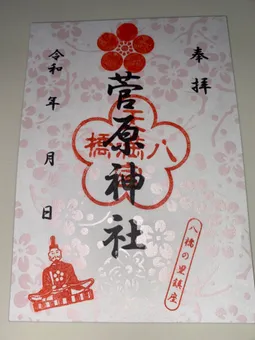 奉拝
八橋の里鎮座
菅原神社
八橋
令和 年 月 日